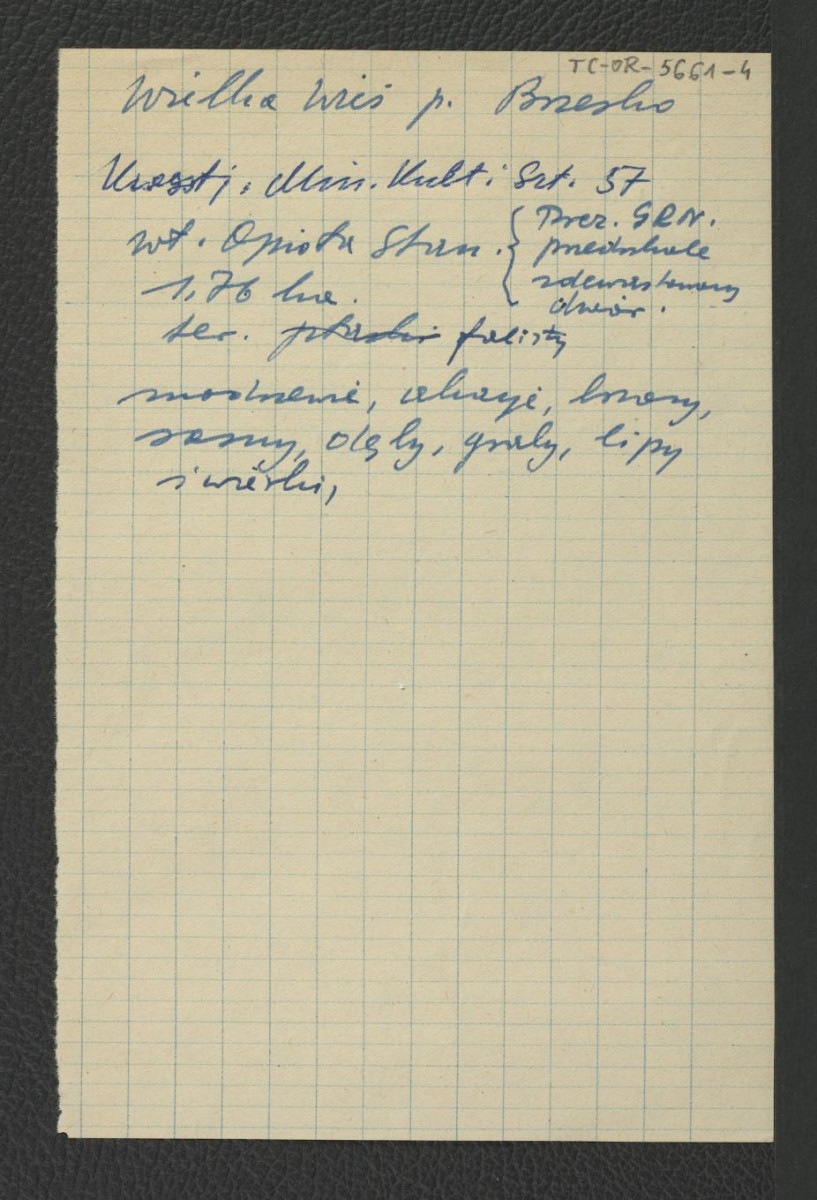 TC-OR-5661-4
Wielka Wieś p. Brzesko
Min. Kult i Szt. 57
wł. Opioła Stan. { Prez. GRN.
przedszkole
zdewastowany
dwór.
1,76 ha.
ter. płaski falisty
modrzewie, akacje, brzozy,
sosny, dęby, graby, lipy
świerki,